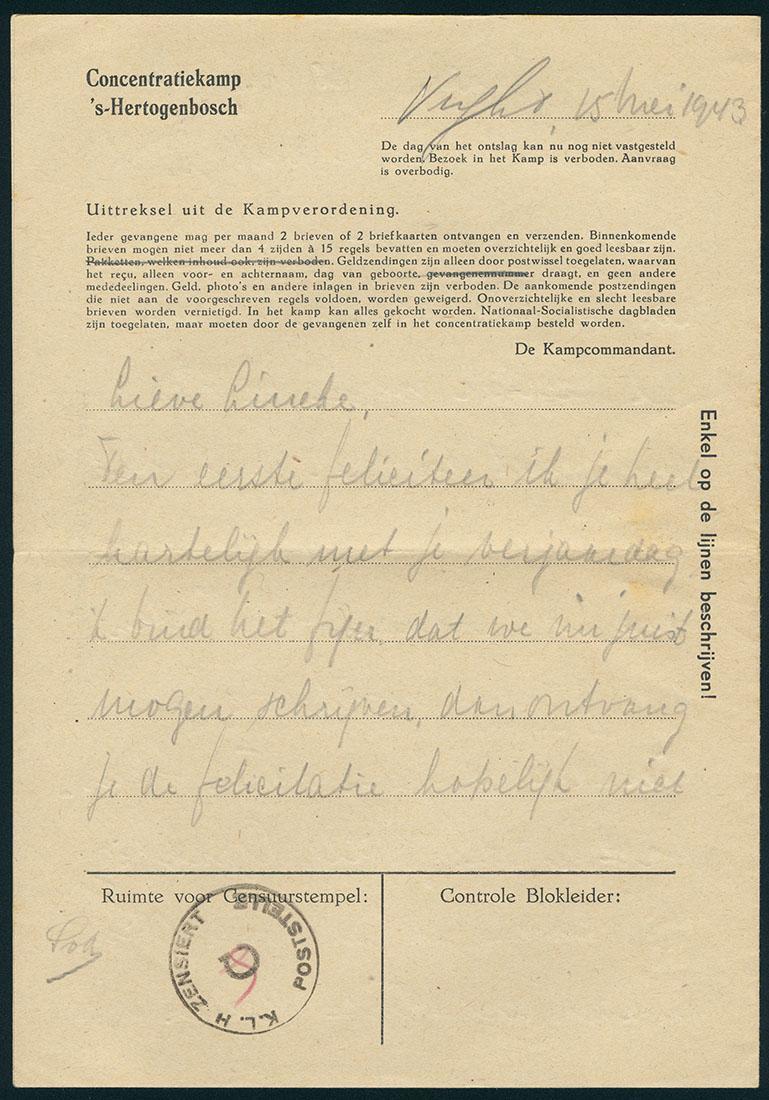 Concentratiekamp
's-Hertogenbosch
Vught, 15 Mei 1943
De dag van het ontslag kan nu nog niet vastgesteld
worden. Bezoek in het Kamp is verboden. Aanvraag
is overbodig.
Uittreksel uit de Kampverordening.
Ieder gevangene mag per maand 2 brieven of 2 briefkaarten ontvangen en verzenden. Binnenkomende
brieven mogen niet meer dan 4 zijden à 15 regels bevatten en moeten overzichtelijk en goed leesbaar zijn.
Pakketten, welken inhoud ook, zijn verboden. Geldzendingen zijn alleen door postwissel toegelaten, waarvan
het reçu, alleen voor- en achternaam, dag van geboorte, gevangenennummer draagt, en geen andere
mededeelingen. Geld, photo's en andere inlagen in brieven zijn verboden. De aankomende postzendingen
die niet aan de voorgeschreven regels voldoen, worden geweigerd. Onoverzichtelijke en slecht leesbare
brieven worden vernietigd. In het kamp kan alles gekocht worden. Nationaal-Socialistische dagbladen
zijn toegelaten, maar moeten door de gevangenen zelf in het concentratiekamp besteld worden.
De Kampcommandant.
Lieve
Ten eerste feliciteer ik je heel
hartelijk met je verjaardag
het fijn, dat we nu juist
mogen schrijven, dan ontvang
je de felicitatie hopelijk niet
Enkel op de lijnen beschrijven!
Ruimte voor Censuurstempel:
Controle Blokleider:
K.L.H ZENSIERT POSTSTELLE
9